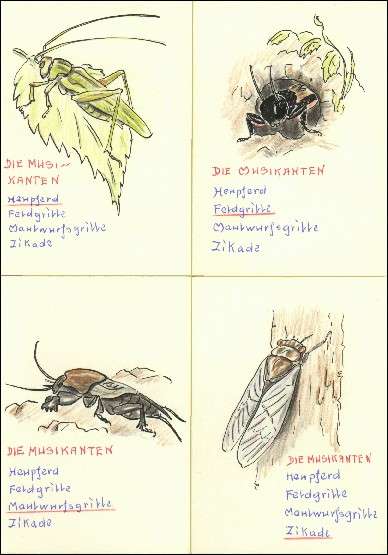 DIE MUSI-
KANTEN
Heupferd
Feldgrille
Maulwurfsgrille
Zikade
DIE MUSIKANTEN
Heupferd
Feldgrille
Maulwurfsgrille
Zikade
DIE MUSIKANTEN
Heupferd
Feldgrille
Maulwurfsgrille
Zikade
DIE MUSIKANTEN
Heupferd
Feldgrille
Maulwurfsgrille
Zikade